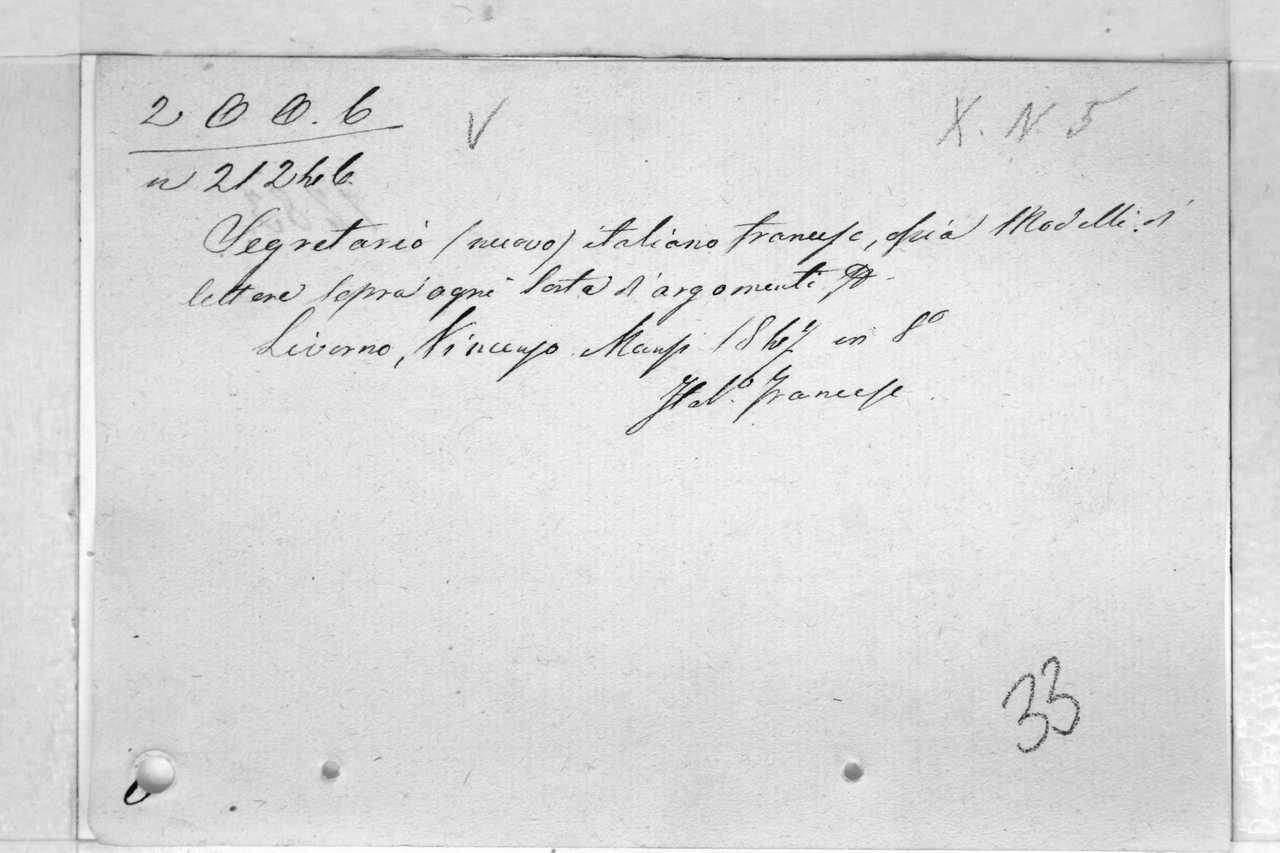 2 0 0. 6
V
X. N. 5
n 21246
Segretario (nuovo) italiano francese, ossia Modelli di
lettere sopra ogni sorta d'argomenti
Livorno, Vincenzo Mansi 1847 in 8º
Italº. Francese
33